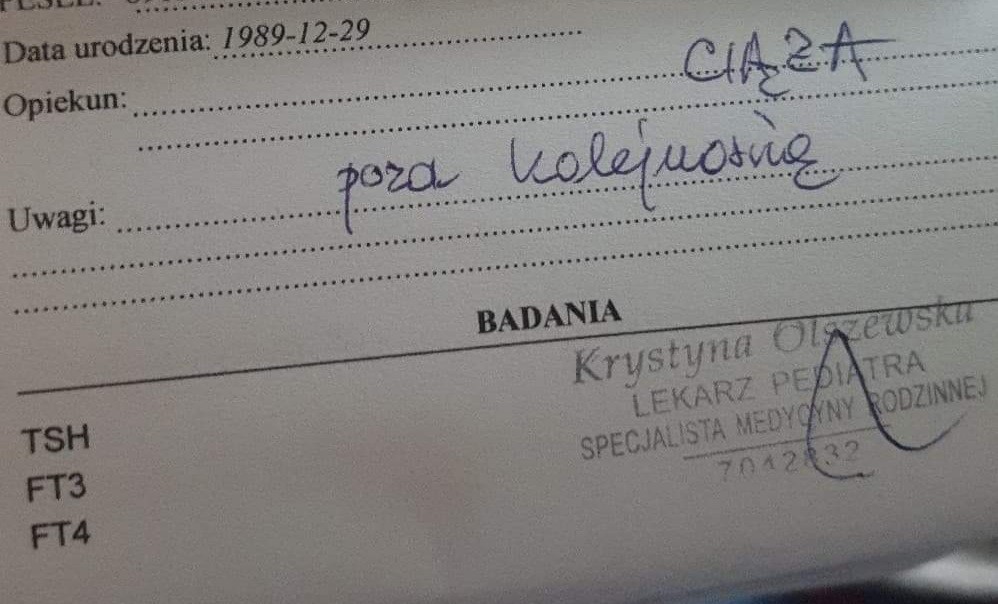 Data urodzenia: 1989-12-29
CIĄŻA
Opiekun:
poza kolejnością
Uwagi:
BADANIA
Krystyna Olszewska
LEKARZ PEDIATRA
SPECJALISTA MEDYCYNY RODZINNEJ
7042832
TSH
FT3
FT4